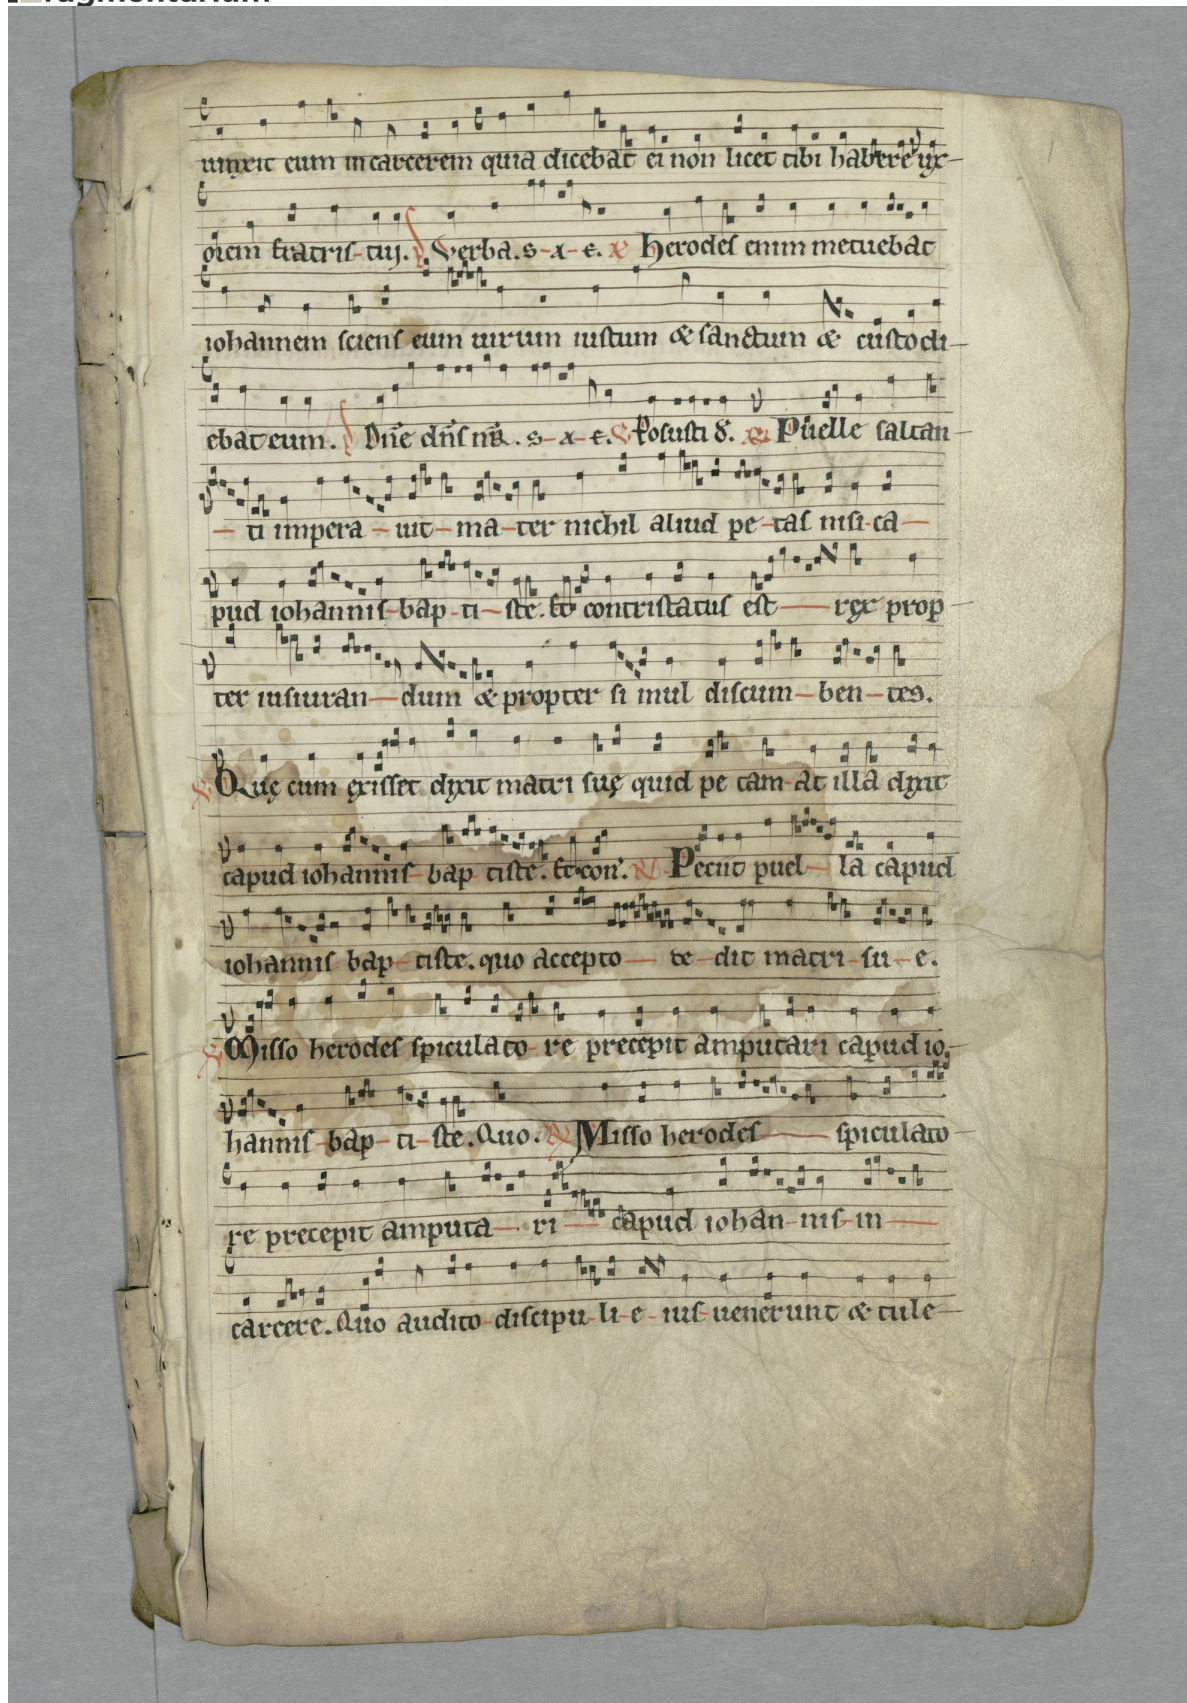 uinxit eum in carcerem quia dicebat ei non licet tibi habere ux-
orem fratris-tui. Verba. s-a-e. Herodes enim metuebat
iohannem sciens eum uirum iustum & sanctum & custodi-
ebat eum. Dn̄e dn̄s nr̄. s-a-e. Posuisti d. Puelle saltan-
-ti impera-uit-ma-ter nichil aliud pe-tas nisi-ca-
pud iohannis-bap-ti-ste. Et contristatus est-rex prop-
ter iusiuran-dum & propter si mul discum-ben-tes.
Quę cum exisset dixit matri suę quid pe tam-at illa dixit
capud iohannis-bap-tiste. Et con. Petiit puel-la capud
iohannis bap-tiste. quo accepto-de-dit matri-su-e.
Misso herodes spiculato-re precepit amputari capud io-
hannis-bap-ti-ste. Quo. Misso herodes-spiculato-
re precepit amputa-ri-capud iohan-nis-in-
carcere. Quo audito-discipu-li-e-ius-uenerunt & tule-